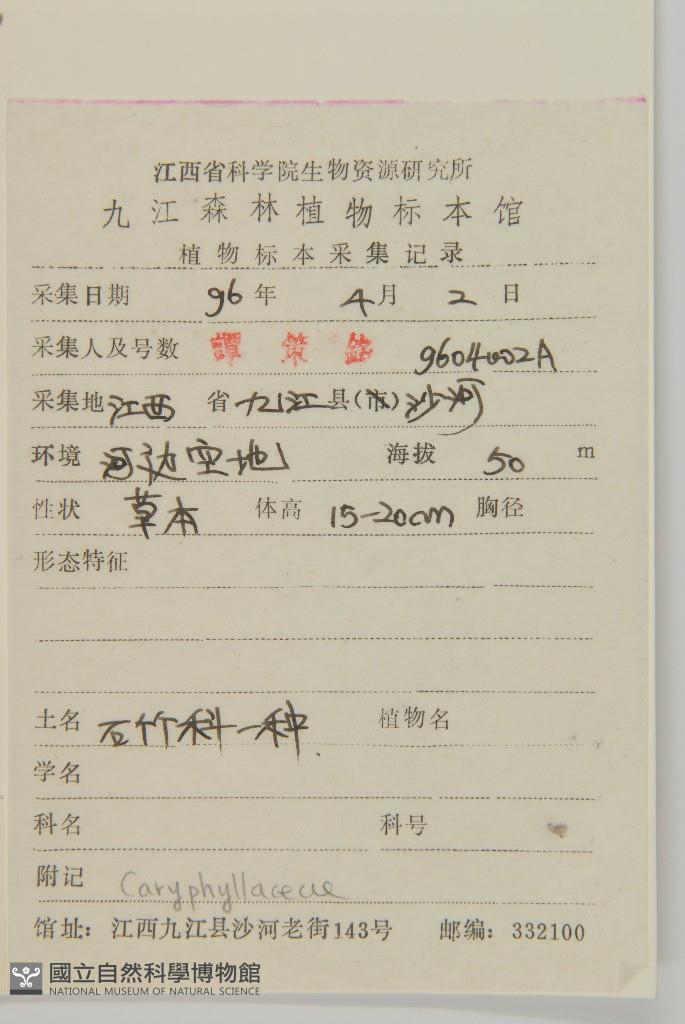 江西省科学院生物资源研究所
九江森林植物标本馆
植物标本采集记录
采集日期 96 年 4 月 2 日
采集人及号数 譚策銘 9604002A
采集地 江西 省 九江 县(市) 沙河
环境 河边空地 海拔 50 m
性状 草本 体高 15-20cm 胸径
形态特征
土名 石竹科一种. 植物名
学名
科名 科号
附记 Caryphyllaceae
馆址：江西九江县沙河老街143号 邮编：332100
國立自然科學博物館
NATIONAL MUSEUM OF NATURAL SCIENCE